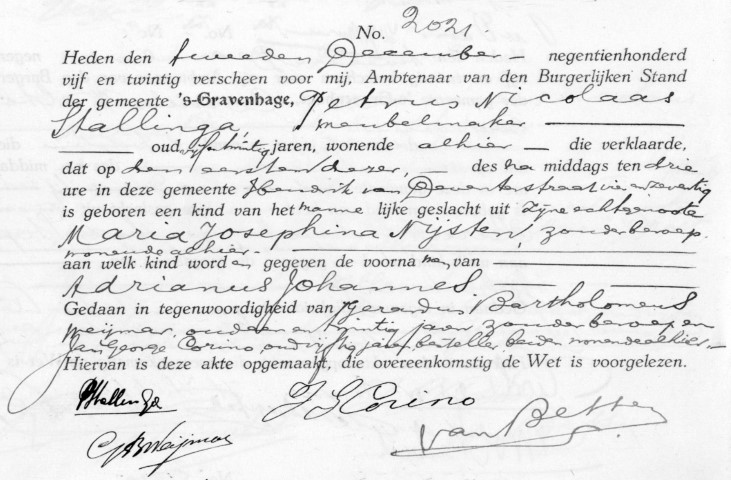 No. 2021.
Heden den tweeden December negentienhonderd
vijf en twintig verscheen voor mij, Ambtenaar van den Burgerlijken Stand
der gemeente 's-Gravenhage, Petrus Nicolaas
Stallinga, meubelmaker
oud jaren, wonende alhier die verklaarde,
dat op den eersten dezer, des na middags ten drie
ure in deze gemeente Hendrik van Deventerstraat vier en zeventig
is geboren een kind van het manne lijke geslacht uit zijne echtgenoote
Maria Josephina Nijsten, zonder beroep,
wonende alhier.
aan welk kind word en gegeven de voorna men van
Adrianus Johannes
Gedaan in tegenwoordigheid van Gerardus Bartholomeus
Weijmar, oud een en twintig jaren, zonder beroep en
Jan George Corino, oud vijftig jaren, besteller, beiden wonende alhier.
Hiervan is deze akte opgemaakt, die overeenkomstig de Wet is voorgelezen.
PNStallinga JGCorino
GBWeijmar